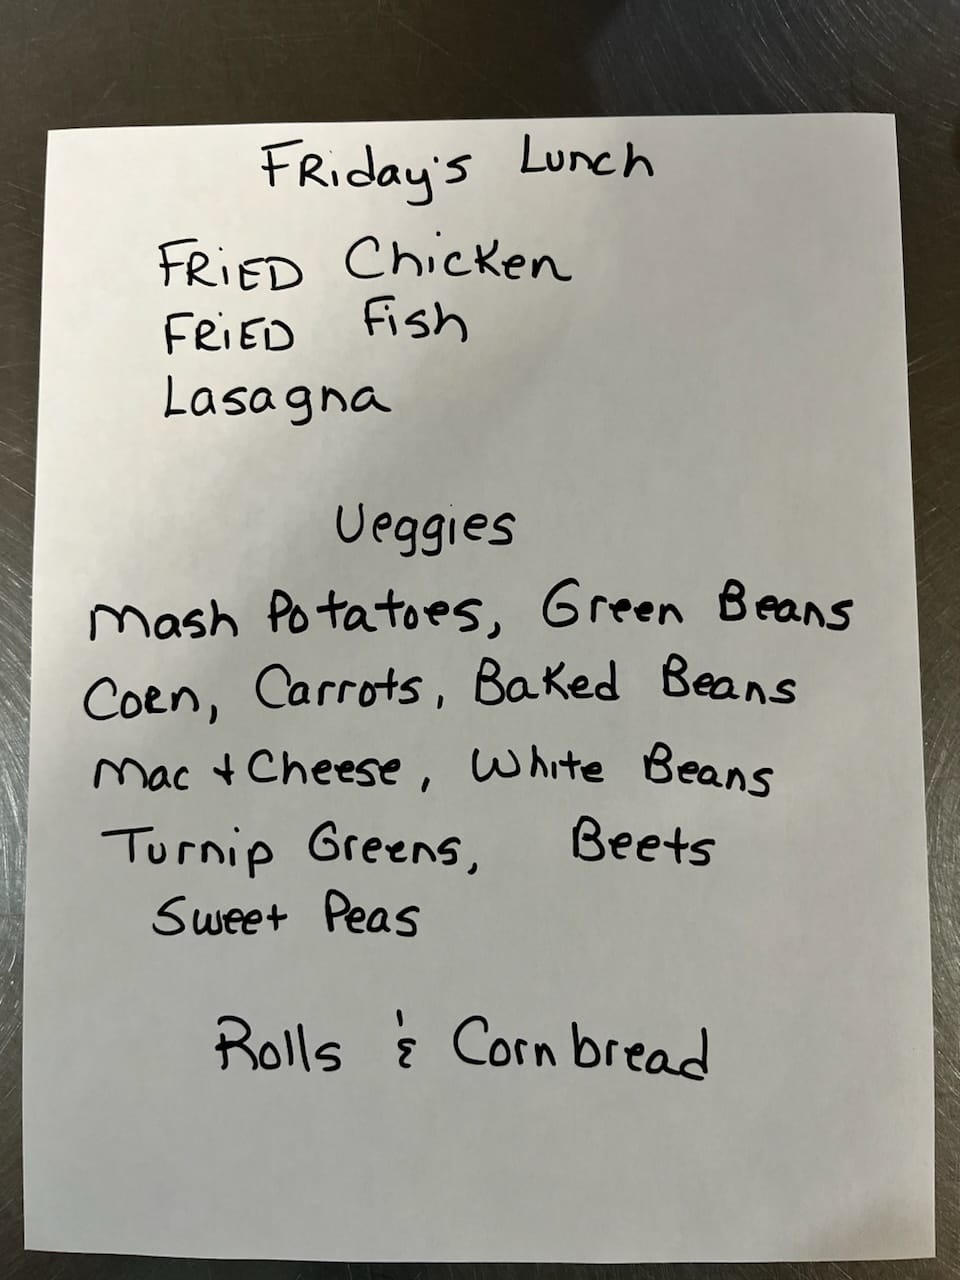 Friday's Lunch
FRIED Chicken
FRIED Fish
Lasagna
Veggies
Mash Potatoes, Green Beans
Corn, Carrots, Baked Beans
Mac + Cheese, White Beans
Turnip Greens, Beets
Sweet Peas
Rolls & Cornbread